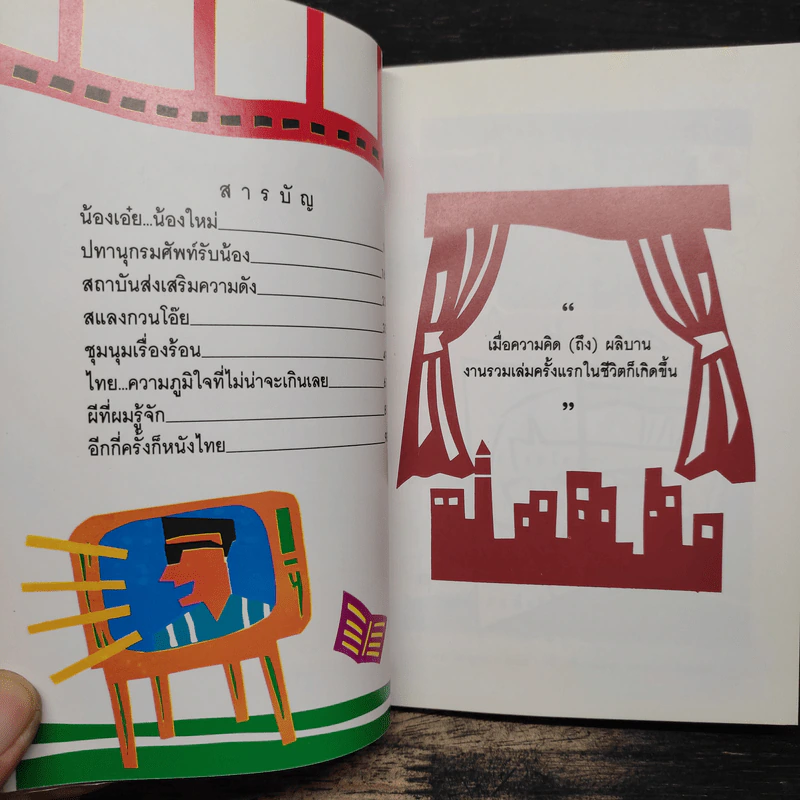 สารบัญ
น้องเอ๋ย...น้องใหม่
ปทานุกรมศัพท์รับน้อง
สถาบันส่งเสริมความดัง
สแลงกวนโอ๊ย
ชุมนุมเรื่องร้อน
ไทย...ความภูมิใจที่ไม่น่าจะเกินเลย
ผีที่ผมรู้จัก
อีกกี่ครั้งก็หนังไทย
“
เมื่อความคิด (ถึง) ผลิบาน
งานรวมเล่มครั้งแรกในชีวิตก็เกิดขึ้น
”